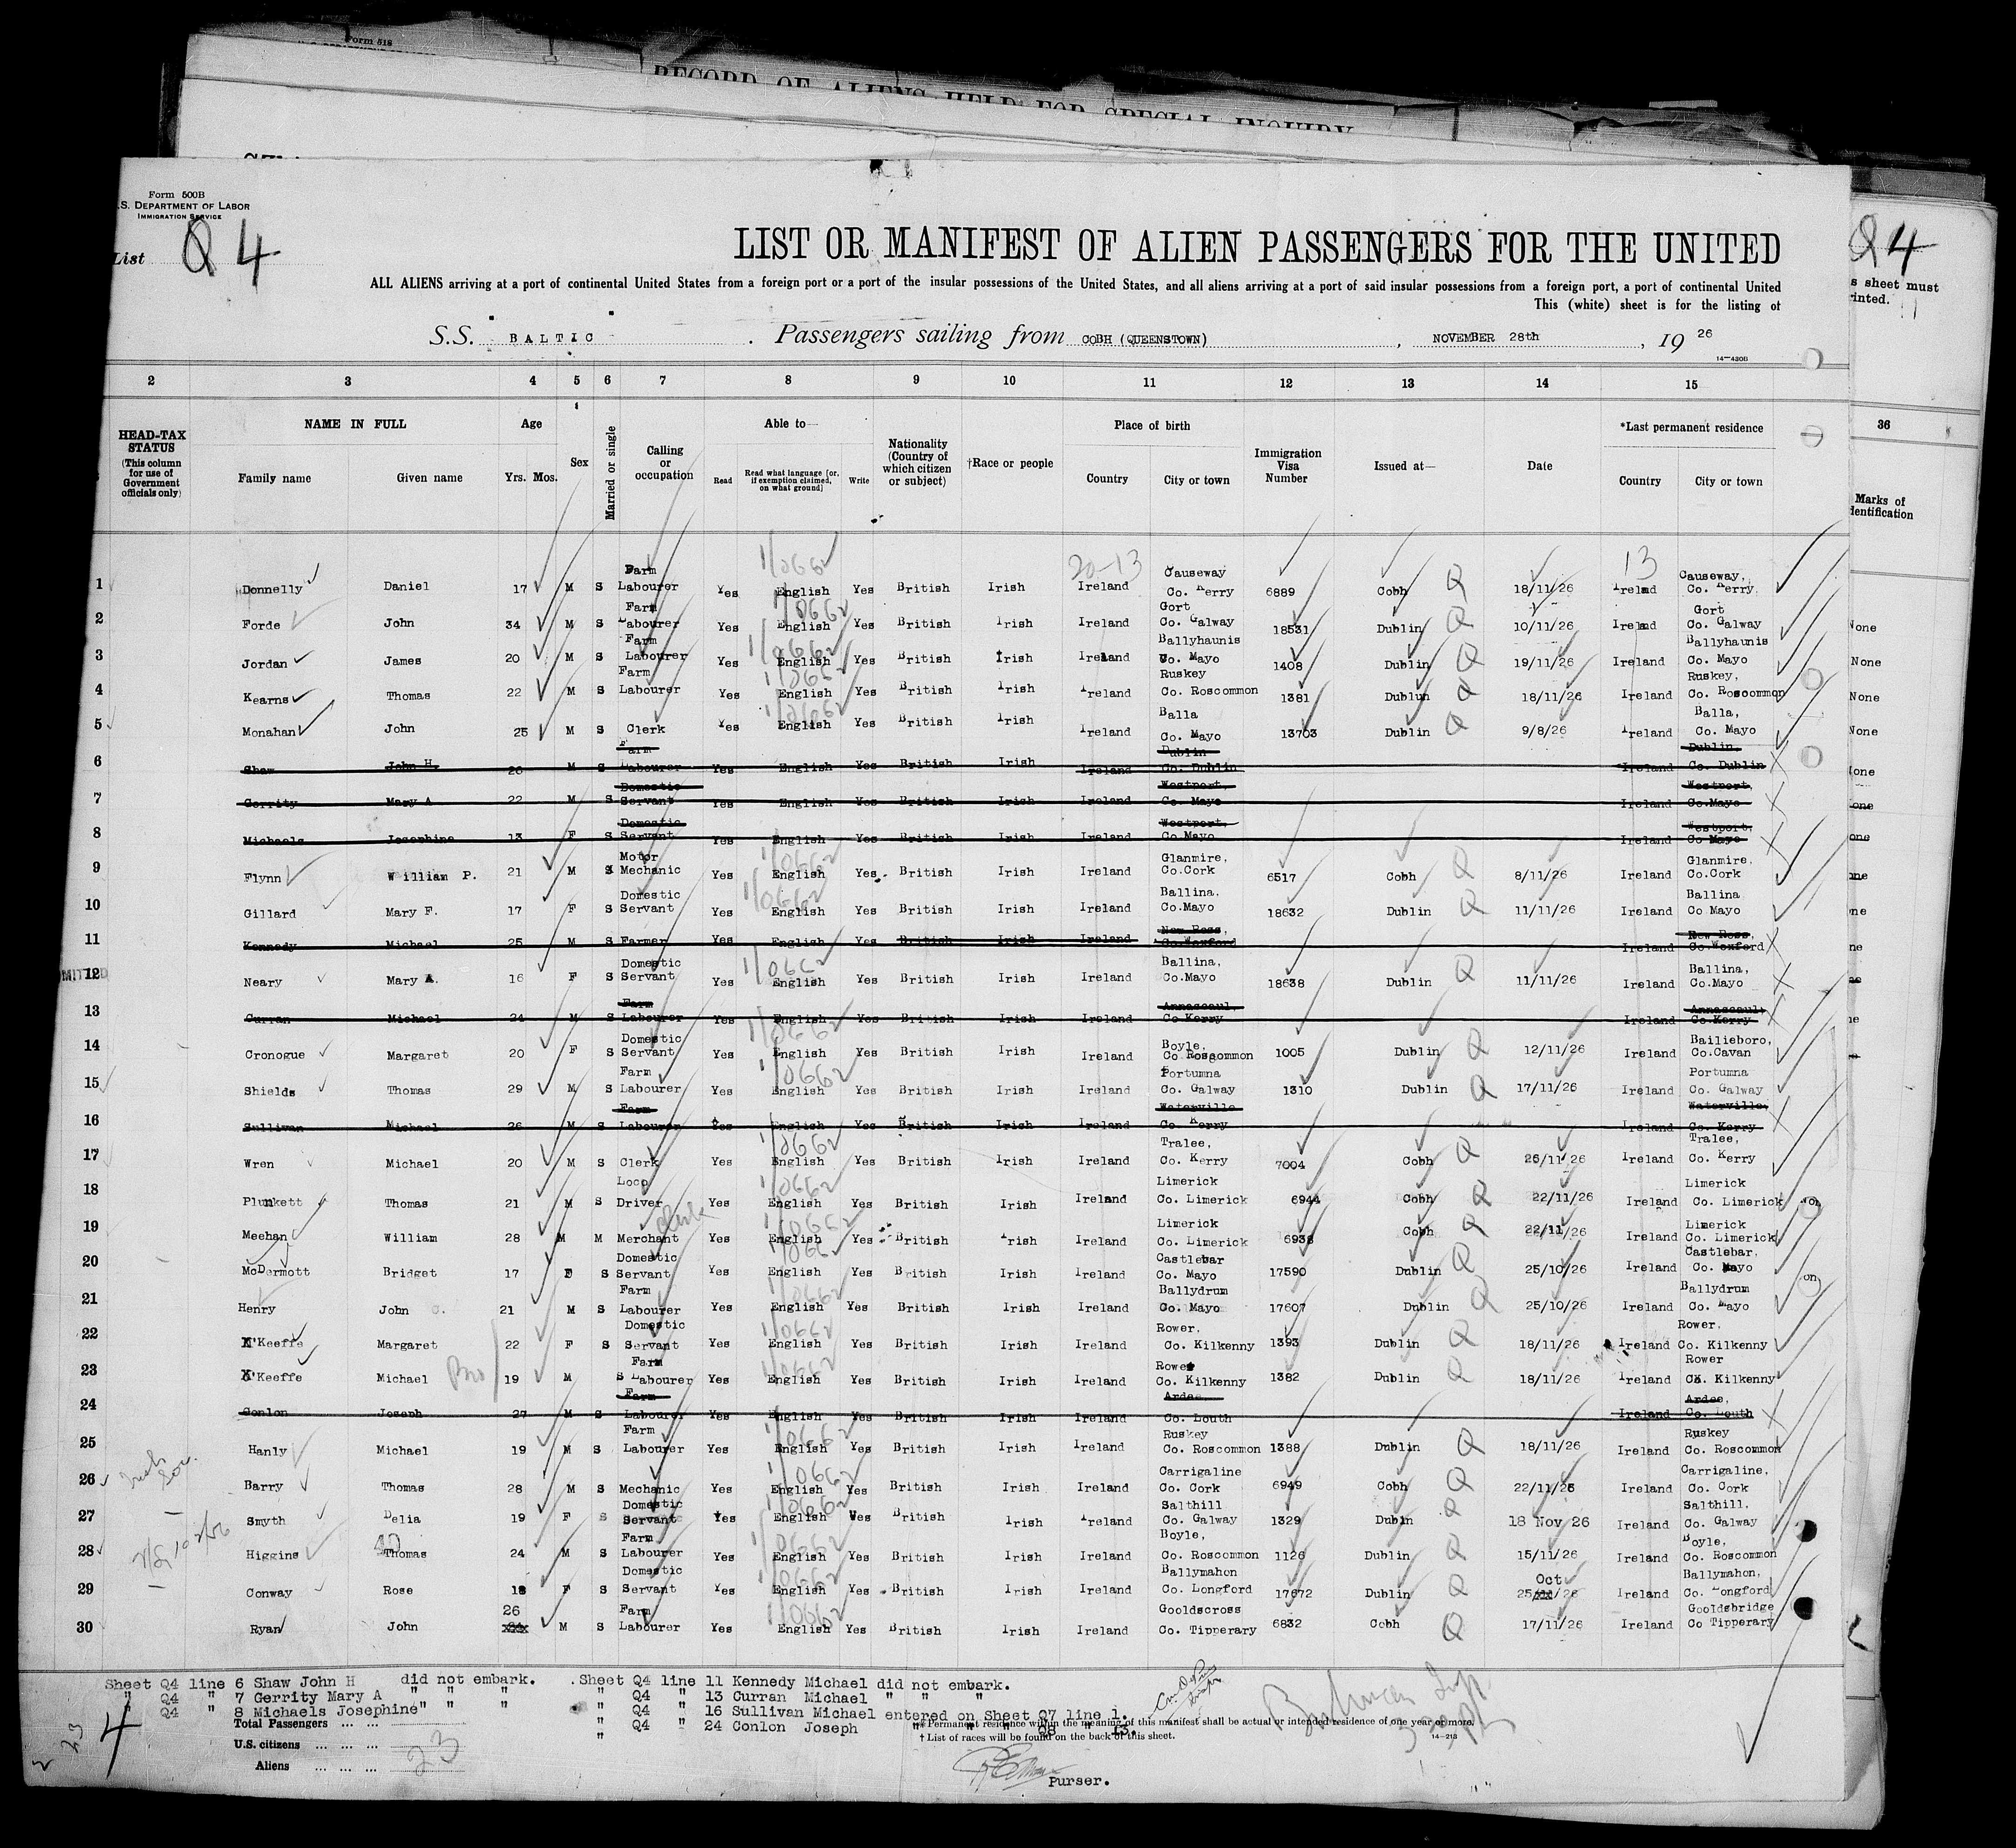 Form 518
RECORD OF ALIENS HELD FOR SPECIAL INQUIRY
Form 500B
U.S. DEPARTMENT OF LABOR
IMMIGRATION SERVICE
List Q 4
Q4
LIST OR MANIFEST OF ALIEN PASSENGERS FOR THE UNITED
ALL ALIENS arriving at a port of continental United States from a foreign port or a port of the insular possessions of the United States, and all aliens arriving at a port of said insular possessions from a foreign port, a port of continental United
s sheet must
This (white) sheet is for the listing of
rinted.
S.S. BALTIC . Passengers sailing from COBH (QUEENSTOWN) , NOVEMBER 28th , 19 26
14—430B
2 3 4 5 6 7 8 9 10 11 12 13 14 15 36
HEAD-TAX STATUS (This column for use of Government officials only) NAME IN FULL Family name Given name Age Yrs. Mos. Sex Married or single Calling or occupation Able to— Read Read what language [or, if exemption claimed, on what ground] Write Nationality (Country of which citizen or subject) †Race or people Place of birth Country City or town Immigration Visa Number Issued at— Date *Last permanent residence Country City or town Marks of identification
20-13 13
1 Donnelly Daniel 17 M S Farm Labourer Yes English Yes British Irish Ireland Causeway Co. Kerry 6889 Cobh Q 18/11/26 Ireland Causeway, Co. Kerry
2 Forde John 34 M S Farm Labourer Yes English Yes British Irish Ireland Gort Co. Galway 18531 Dublin Q 10/11/26 Ireland Gort Co. Galway None
3 Jordan James 20 M S Farm Labourer Yes English Yes British Irish Ireland Ballyhaunis Co. Mayo 1408 Dublin Q 19/11/26 Ireland Ballyhaunis Co. Mayo None
4 Kearns Thomas 22 M S Farm Labourer Yes English Yes British Irish Ireland Ruskey Co. Roscommon 1381 Dublun Q 18/11/26 Ireland Ruskey, Co. Roscommon None
5 Monahan John 25 M S Clerk Yes English Yes British Irish Ireland Balla Co. Mayo 13703 Dublin Q 9/8/26 Ireland Balla, Co. Mayo None
6 Shaw John H. 26 M S Farm Labourer Yes English Yes British Irish Ireland Dublin Co. Dublin Ireland Dublin. Co. Dublin
7 Gerrity Mary A 22 M S Domestic Servant Yes English Yes British Irish Ireland Westport, Co. Mayo Ireland Westport, Co.Mayo
8 Michaels Josephine 13 F S Domestic Servant Yes English Yes British Irish Ireland Westport, Co.Mayo Ireland Westport, Co Mayo
9 Flynn William P. 21 M S Motor Mechanic Yes English Yes British Irish Ireland Glanmire, Co.Cork 6517 Cobh Q 8/11/26 Ireland Glanmire, Co.Cork
10 Gillard Mary F. 17 F S Domestic Servant Yes English Yes British Irish Ireland Ballina. Co.Mayo 18632 Dublin Q 11/11/26 Ireland Ballina Co Mayo
11 Kennedy Michael 25 M S Farmer Yes English Yes British Irish Ireland New Ross, Co.Wexford Ireland New Ross, Co.Wexford
12 Neary Mary A. 16 F S Domestic Servant Yes English Yes British Irish Ireland Ballina, Co.Mayo 18638 Dublin Q 11/11/26 Ireland Ballina, Co.Mayo
13 Curran Michael 24 M S Farm Labourer Yes English Yes British Irish Ireland Annascaul, Co Kerry Ireland Annascaul, Co.Kerry
14 Cronogue Margaret 20 F S Domestic Servant Yes English Yes British Irish Ireland Boyle, Co Roscommon 1005 Dublin Q 12/11/26 Ireland Bailieboro, Co.Cavan
15 Shields Thomas 29 M S Farm Labourer Yes English Yes British Irish Ireland Portumna Co. Galway 1310 Dublin Q 17/11/26 Ireland Portumna Co. Galway
16 Sullivan Michael 26 M S Farm Labourer Yes English Yes British Irish Ireland Waterville Co. Kerry Ireland Waterville, Co. Kerry
17 Wren Michael 20 M S Clerk Yes English Yes British Irish Ireland Tralee, Co. Kerry 7004 Cobh Q 26/11/26 Ireland Tralee, Co. Kerry
18 Plunkett Thomas 21 M S Loco Driver Yes English Yes British Irish Ireland Limerick Co. Limerick 6944 Cobh Q 22/11/26 Ireland Limerick Co. Limerick
19 Meehan William 28 M M Merchant clerk Yes English Yes British Irish Ireland Limerick Co. Limerick 6938 Cobh Q 22/11/26 Ireland Limerick Co. Limerick
20 McDermott Bridget 17 F S Domestic Servant Yes English Yes British Irish Ireland Castlebar Co. Mayo 17590 Dublin Q 25/10/26 Ireland Castlebar, Co. Mayo
21 Henry John 21 M S Farm Labourer Yes English Yes British Irish Ireland Ballydrum Co. Mayo 17607 Dublin Q 25/10/26 Ireland Ballydrum Co. Mayo
22 O'Keeffe Margaret 22 F S Domestic Servant Yes English Yes British Irish Ireland Rower, Co. Kilkenny 1393 Dublin Q 18/11/26 Ireland Rower, Co. Kilkenny
23 O'Keeffe Michael Bro 19 M S Farm Labourer Yes English Yes British Irish Ireland Rower Co. Kilkenny 1382 Dublin Q 18/11/26 Ireland Rower Co. Kilkenny
24 Conlon Joseph 27 M S Farm Labourer Yes English Yes British Irish Ireland Ardee Co. Louth Ireland Ardee, Co. Louth
25 Hanly Michael 19 M S Farm Labourer Yes English Yes British Irish Ireland Ruskey Co. Roscommon 1388 Dublin Q 18/11/26 Ireland Ruskey Co. Roscommon
26 Barry Thomas 28 M S Mechanic Yes English Yes British Irish Ireland Carrigaline Co. Cork 6949 Cobh Q 22/11/26 Ireland Carrigaline, Co. Cork
27 Smyth Delia 19 F S Domestic Servant Yes English Yes British Irish Ireland Salthill Co. Galway 1329 Dublin Q 18 Nov 26 Ireland Salthill, Co. Galway
28 Higgins Thomas 24 M S Farm Labourer Yes English Yes British Irish Ireland Boyle, Co. Roscommon 1126 Dublin Q 15/11/26 Ireland Boyle, Co. Roscommon
29 Conway Rose 18 F S Domestic Servant Yes English Yes British Irish Ireland Ballymahon Co. Longford 17672 Dublin Q 25 Oct /26 Ireland Ballymahon, Co. Longford
30 Ryan John 26 M S Farm Labourer Yes English Yes British Irish Ireland Gooldscross Co. Tipperary 6832 Cobh Q 17/11/26 Ireland Gooldsbridge Co Tipperary
Sheet Q4 line 6 Shaw John H did not embark. Sheet Q4 line 11 Kennedy Michael did not embark.
" Q4 " 7 Gerrity Mary A " " " " Q4 " 13 Curran Michael " " "
" Q4 " 8 Michaels Josephine " " " " Q4 " 16 Sullivan Michael entered on Sheet Q7 line 1.
" Q4 " 24 Conlon Joseph " " " Q8 " 13.
Total Passengers ... ...
* Permanent residence within the meaning of this manifest shall be actual or intended residence of one year or more.
U.S. citizens ... ... ...
† List of races will be found on the back of this sheet.
14—213
Aliens ... ... ... 23
4
Purser.